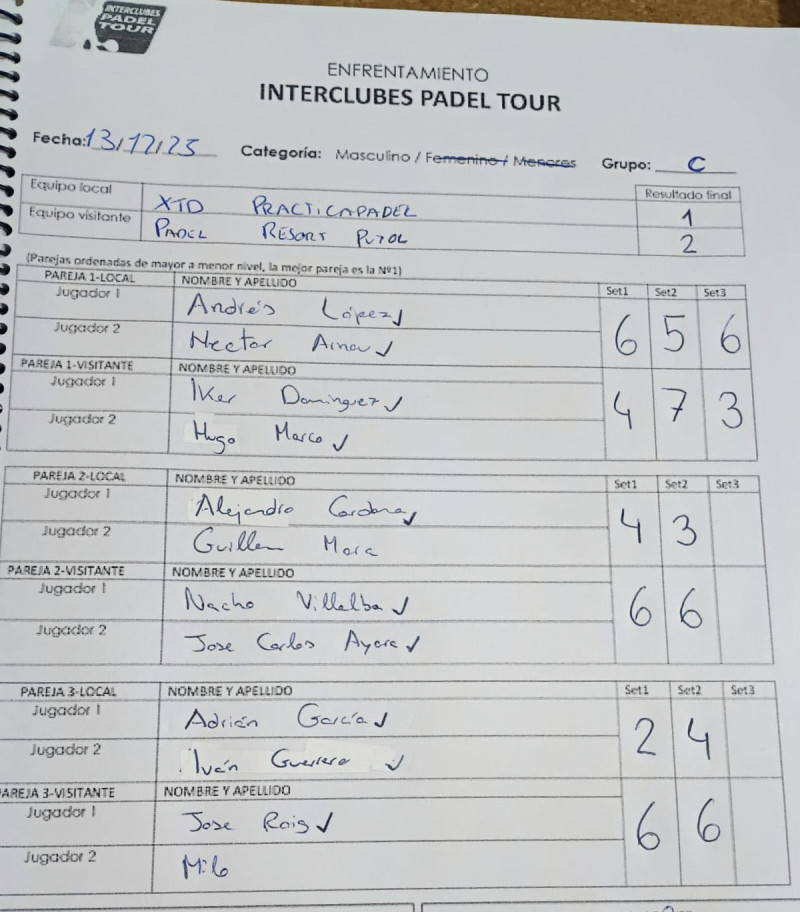 INTERCLUBES
PADEL
TOUR
ENFRENTAMIENTO
INTERCLUBES PADEL TOUR
Fecha: 13/12/25 Categoría: Masculino / Femenino / Menores Grupo: C
Equipo local XTD PRACTICAPADEL Resultado final
1
Equipo visitante PADEL RESORT PUZOL 2
(Parejas ordenadas de mayor a menor nivel, la mejor pareja es la Nº1)
PAREJA 1-LOCAL NOMBRE Y APELLIDO Set1 Set2 Set3
Jugador 1 Andrés López ✓
Jugador 2 Hector Arnau ✓ 6 5 6
PAREJA 1-VISITANTE NOMBRE Y APELLIDO
Jugador 1 Iker Dominguez ✓
Jugador 2 Hugo Marco ✓ 4 7 3
PAREJA 2-LOCAL NOMBRE Y APELLIDO Set1 Set2 Set3
Jugador 1 Alejandro Cardona ✓
Jugador 2 Guillem Mora 4 3
PAREJA 2-VISITANTE NOMBRE Y APELLIDO
Jugador 1 Nacho Villalba ✓
Jugador 2 Jose Carlos Ayora ✓ 6 6
PAREJA 3-LOCAL NOMBRE Y APELLIDO Set1 Set2 Set3
Jugador 1 Adrián García ✓
Jugador 2 Iván Guerrero ✓ 2 4
PAREJA 3-VISITANTE NOMBRE Y APELLIDO
Jugador 1 Jose Roig ✓
Jugador 2 Milo 6 6